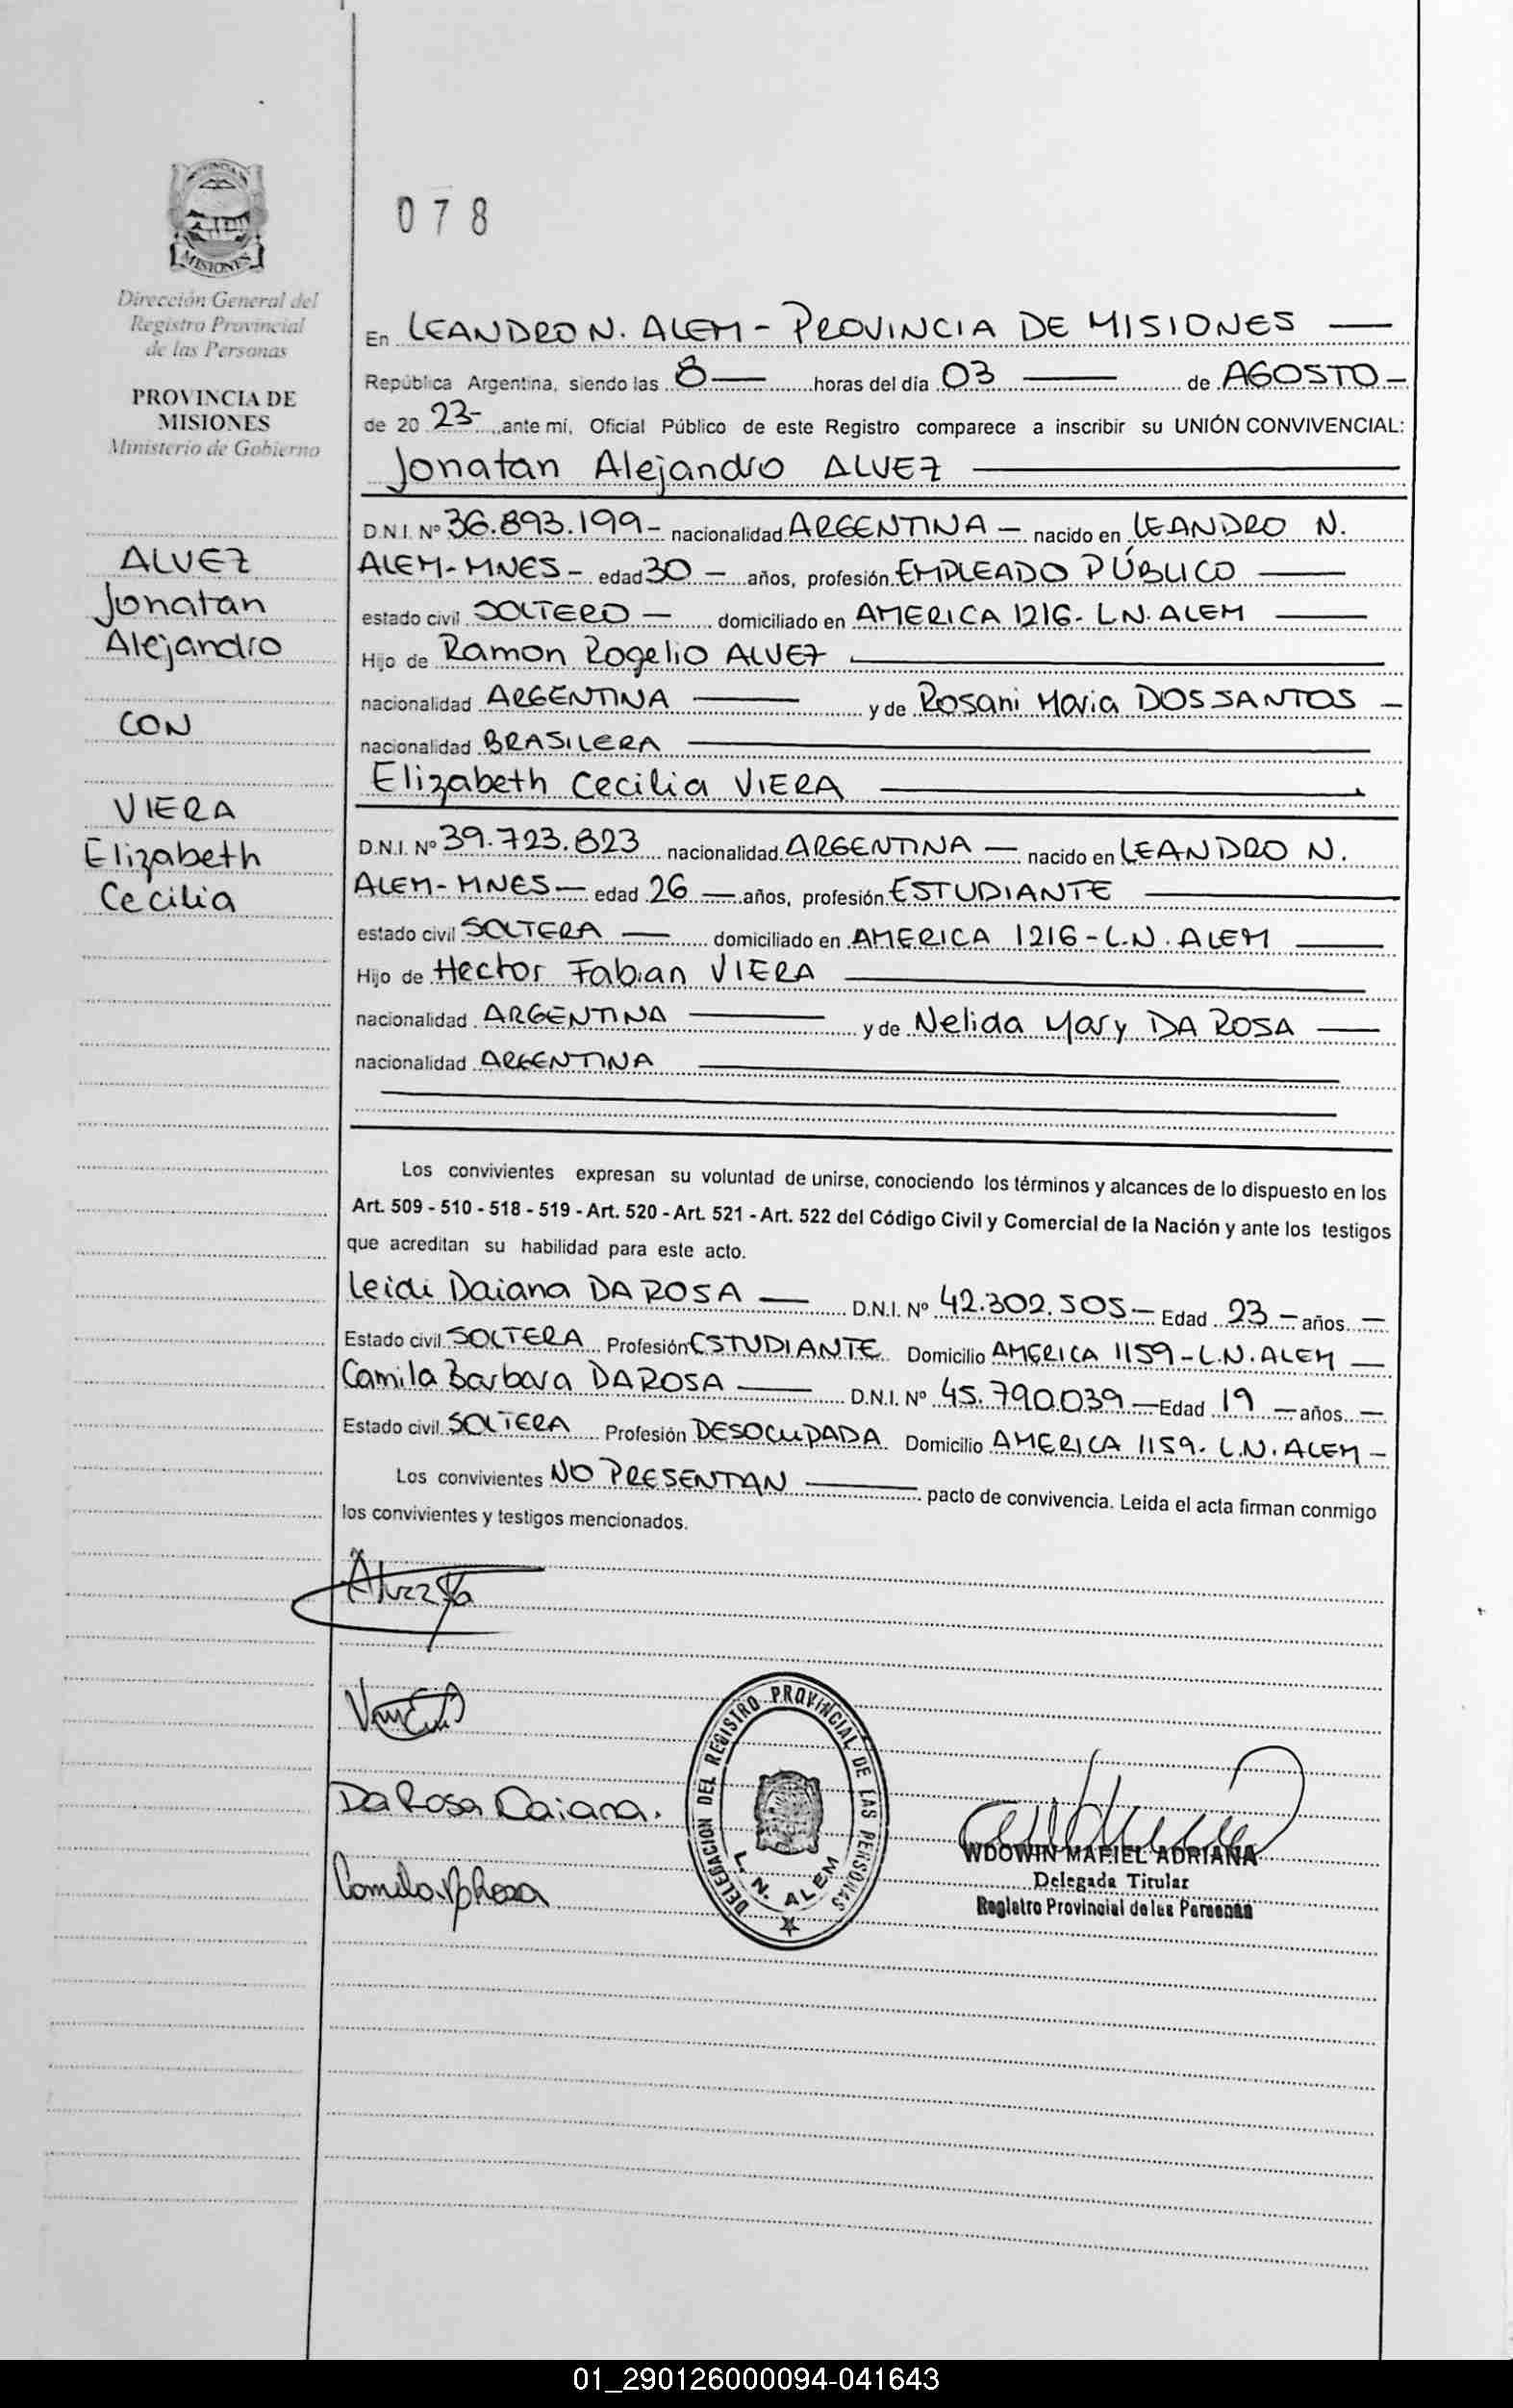 078
MISIONES
Dirección General del
Registro Provincial
de las Personas
PROVINCIA DE
MISIONES
Ministerio de Gobierno
ALVEZ
Jonatan
Alejandro
CON
VIERA
Elizabeth
Cecilia
En LEANDRO N. ALEM - PROVINCIA DE MISIONES —
República Argentina, siendo las 8 — horas del día 03 — de AGOSTO -
de 20 23- ante mí, Oficial Público de este Registro comparece a inscribir su UNIÓN CONVIVENCIAL:
Jonatan Alejandro ALVEZ —
D.N.I. Nº 36.893.199- nacionalidad ARGENTINA — nacido en LEANDRO N.
ALEM-MNES - edad 30 - años, profesión EMPLEADO PÚBLICO —
estado civil SOLTERO — domiciliado en AMERICA 1216- L.N. ALEM —
Hijo de Ramon Rogelio ALVEZ —
nacionalidad ARGENTINA — y de Rosani Maria DOS SANTOS -
nacionalidad BRASILERA —
Elizabeth Cecilia VIERA —
D.N.I. Nº 39.723.823 nacionalidad ARGENTINA — nacido en LEANDRO N.
ALEM-MNES — edad 26 — años, profesión ESTUDIANTE —
estado civil SOLTERA — domiciliado en AMERICA 1216-L.N. ALEM —
Hijo de Hector Fabian VIERA —
nacionalidad ARGENTINA — y de Nelida Mary DA ROSA —
nacionalidad ARGENTINA —
Los convivientes expresan su voluntad de unirse, conociendo los términos y alcances de lo dispuesto en los
Art. 509 - 510 - 518 - 519 - Art. 520 - Art. 521 - Art. 522 del Código Civil y Comercial de la Nación y ante los testigos
que acreditan su habilidad para este acto.
Leidi Daiana DA ROSA — D.N.I. Nº 42.302.505— Edad 23 — años —
Estado civil SOLTERA Profesión ESTUDIANTE Domicilio AMERICA 1159-L.N. ALEM —
Camila Barbara DA ROSA — D.N.I. Nº 45.790.039 — Edad 19 — años —
Estado civil SOLTERA Profesión DESOCUPADA Domicilio AMERICA 1159- L.N. ALEM -
Los convivientes NO PRESENTAN — pacto de convivencia. Leída el acta firman conmigo
los convivientes y testigos mencionados.
Da Rosa Daiana.
DELEGACION DEL REGISTRO PROVINCIAL DE LAS PERSONAS
L. N. ALEM
WDOWIN MARIEL ADRIANA
Delegada Titular
Registro Provincial de las Personas
01_290126000094-041643